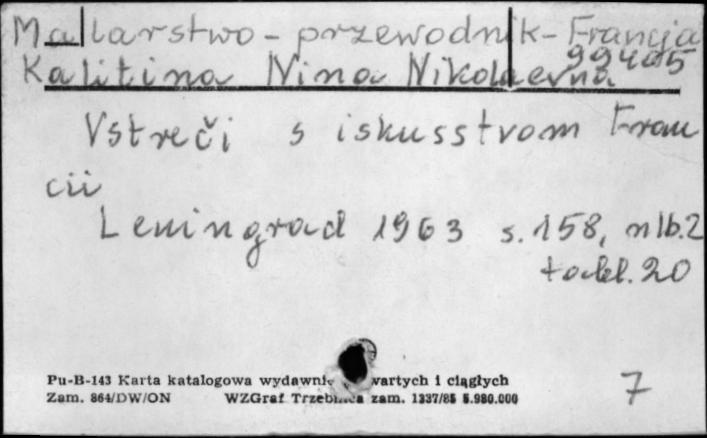 Malarstwo - przewodnik - Francja
99405
Kalitina Nina Nikolaevna
Vstreči s iskusstvom Fran
cii
Leningrad 1963 s. 158, nlb. 2
tabl. 20
Pu-B-143 Karta katalogowa wydawnic wartych i ciągłych
Zam. 864/DW/ON WZGraf Trzebnica zam. 1337/85 5.980.000
7